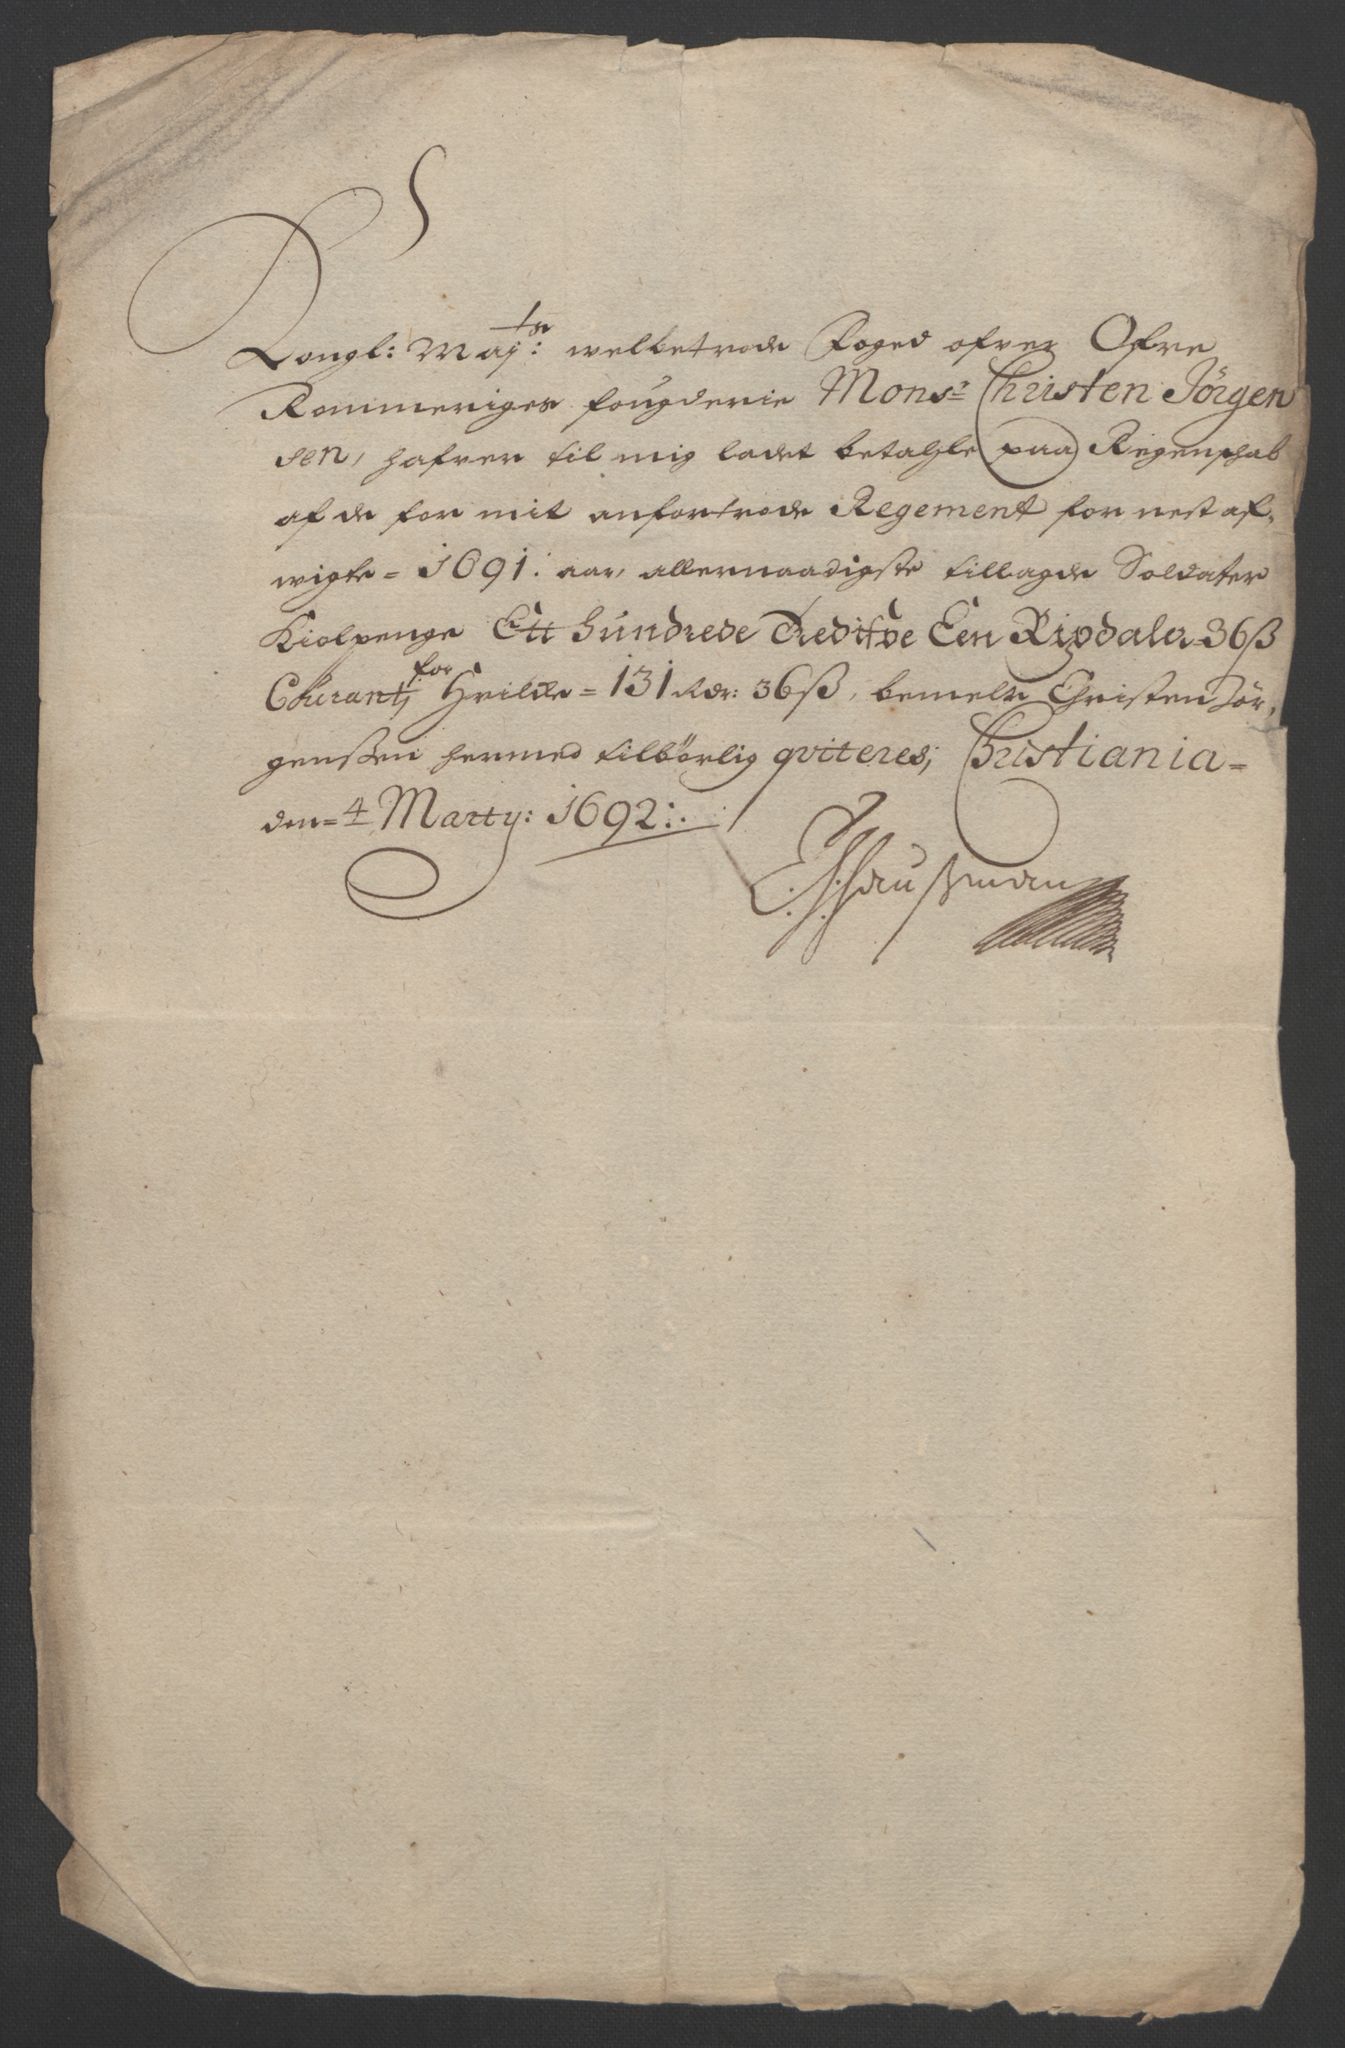 Kongl: Maj:ts welbetrode Foged ofver Ofre
Rommeriges fougderie Mons:r Christen Jörgen
sen, hafver til mig ladet betahle paa Regenschab
af de for mit anfortrode Regement for nest af,
wigte = 1691. aar, allernaadigste tillagde Soldater
Kiolpenge Ett hundrede Treditfve Een Rixdaler 36ß
Courant, for Hvilcke = 131 Rdr: 36ß, bemelte Christen Jör,
genßen hermed tilbörlig qviteres; Christiania =
den = 4 Marty: 1692:.
C. H. Haußman